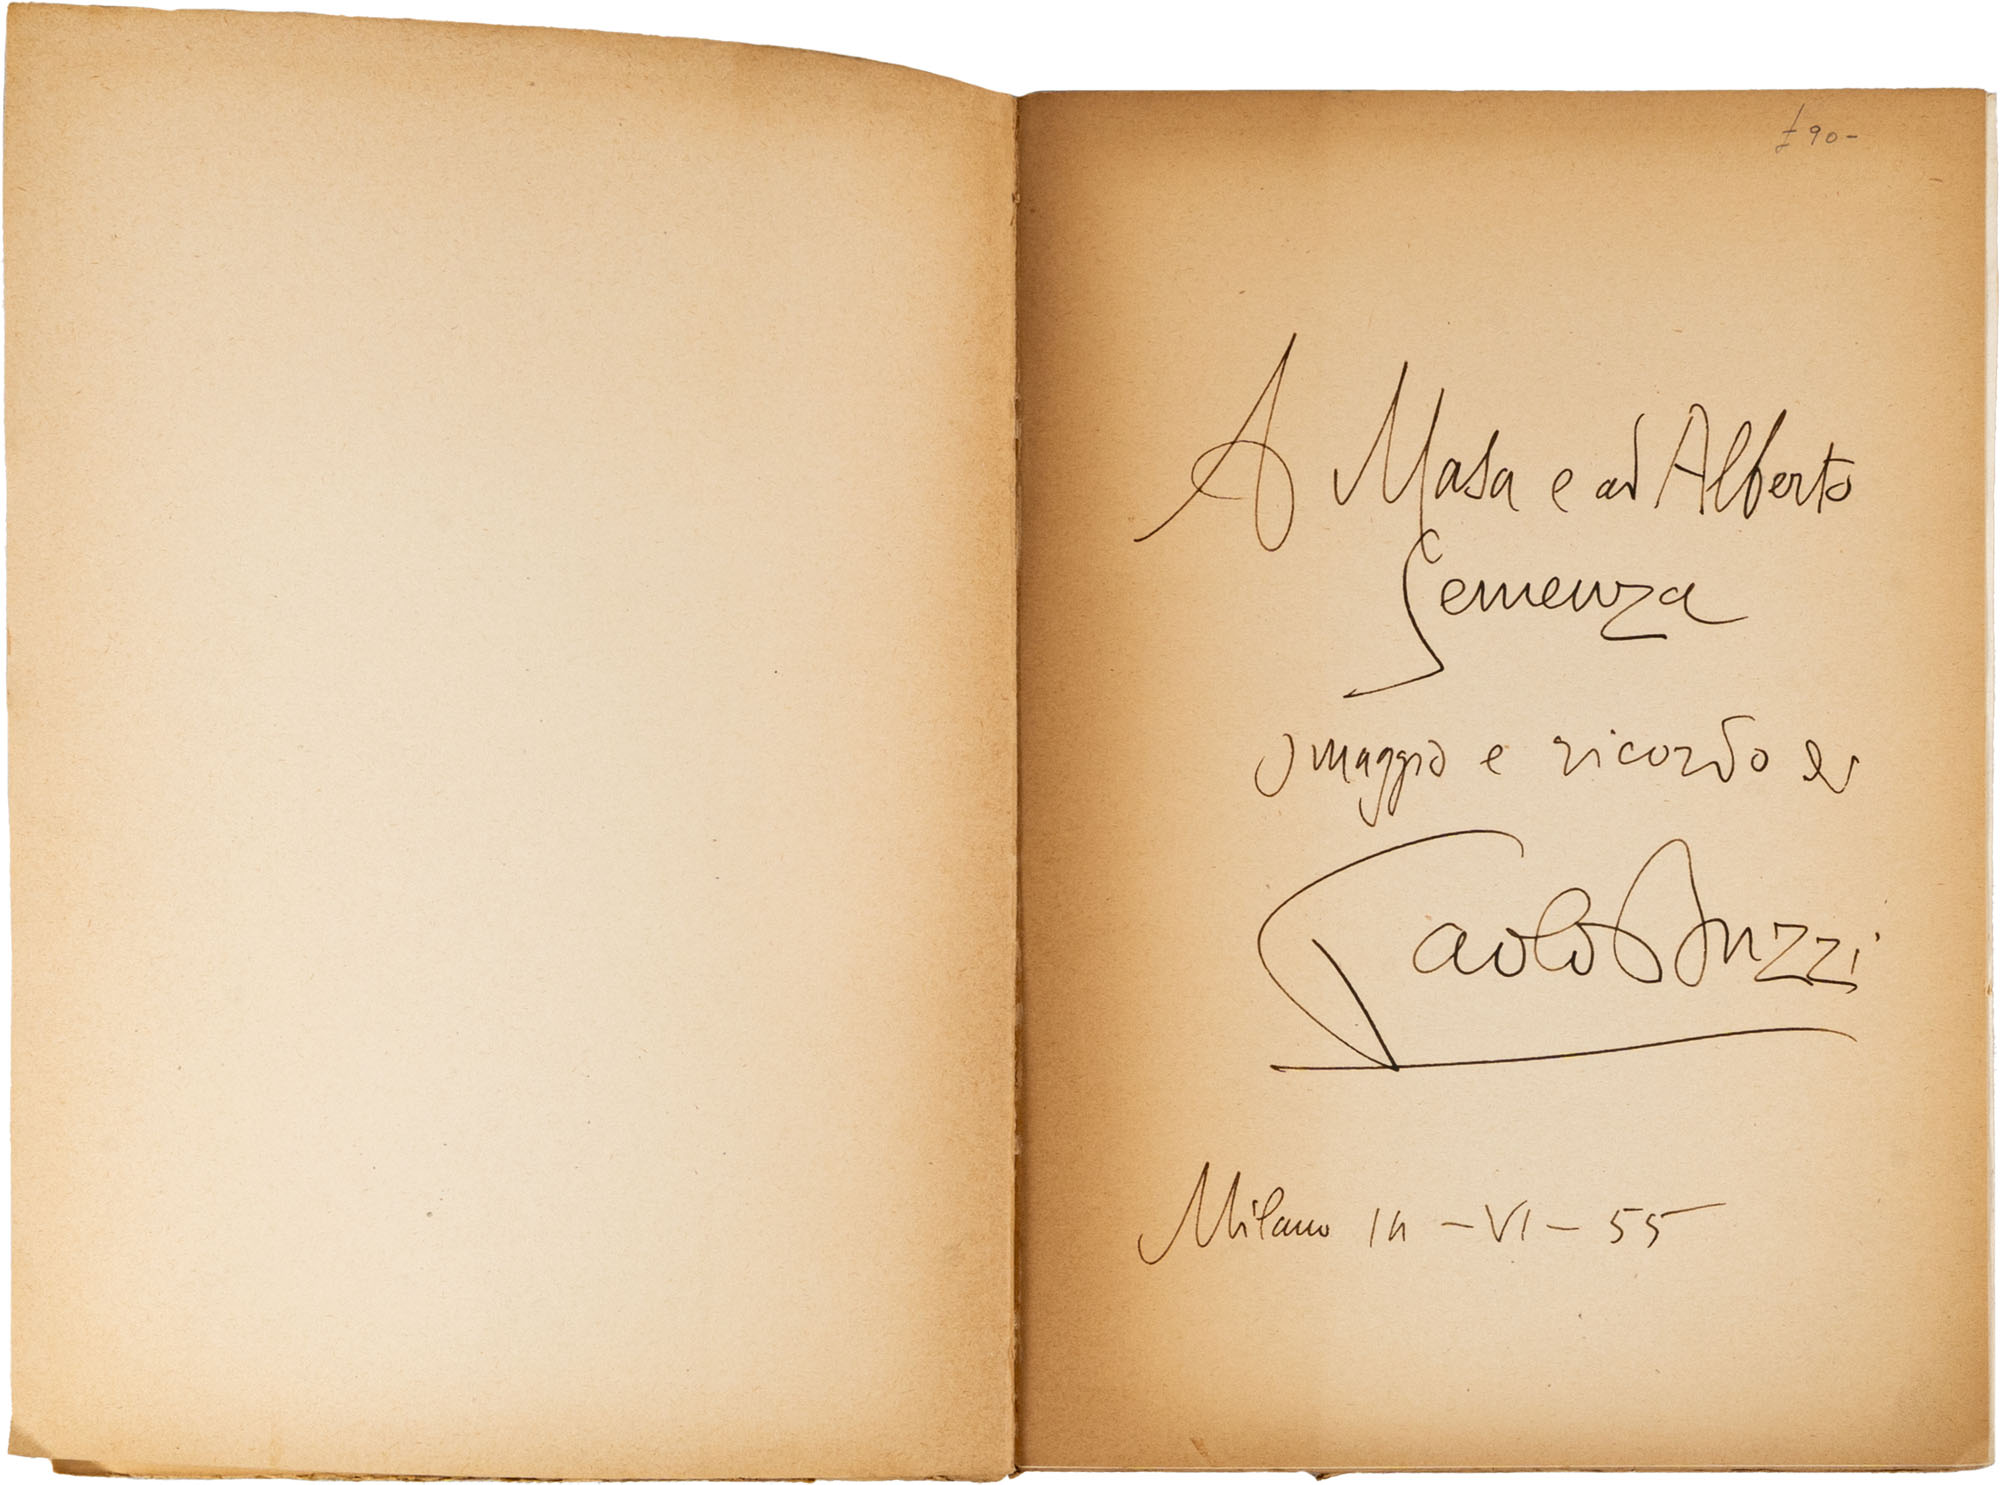 £ 90-
A Masa e ad Alberto
Semenza
omaggio e ricordo di
Paolo Buzzi
Milano 14 - VI - 55